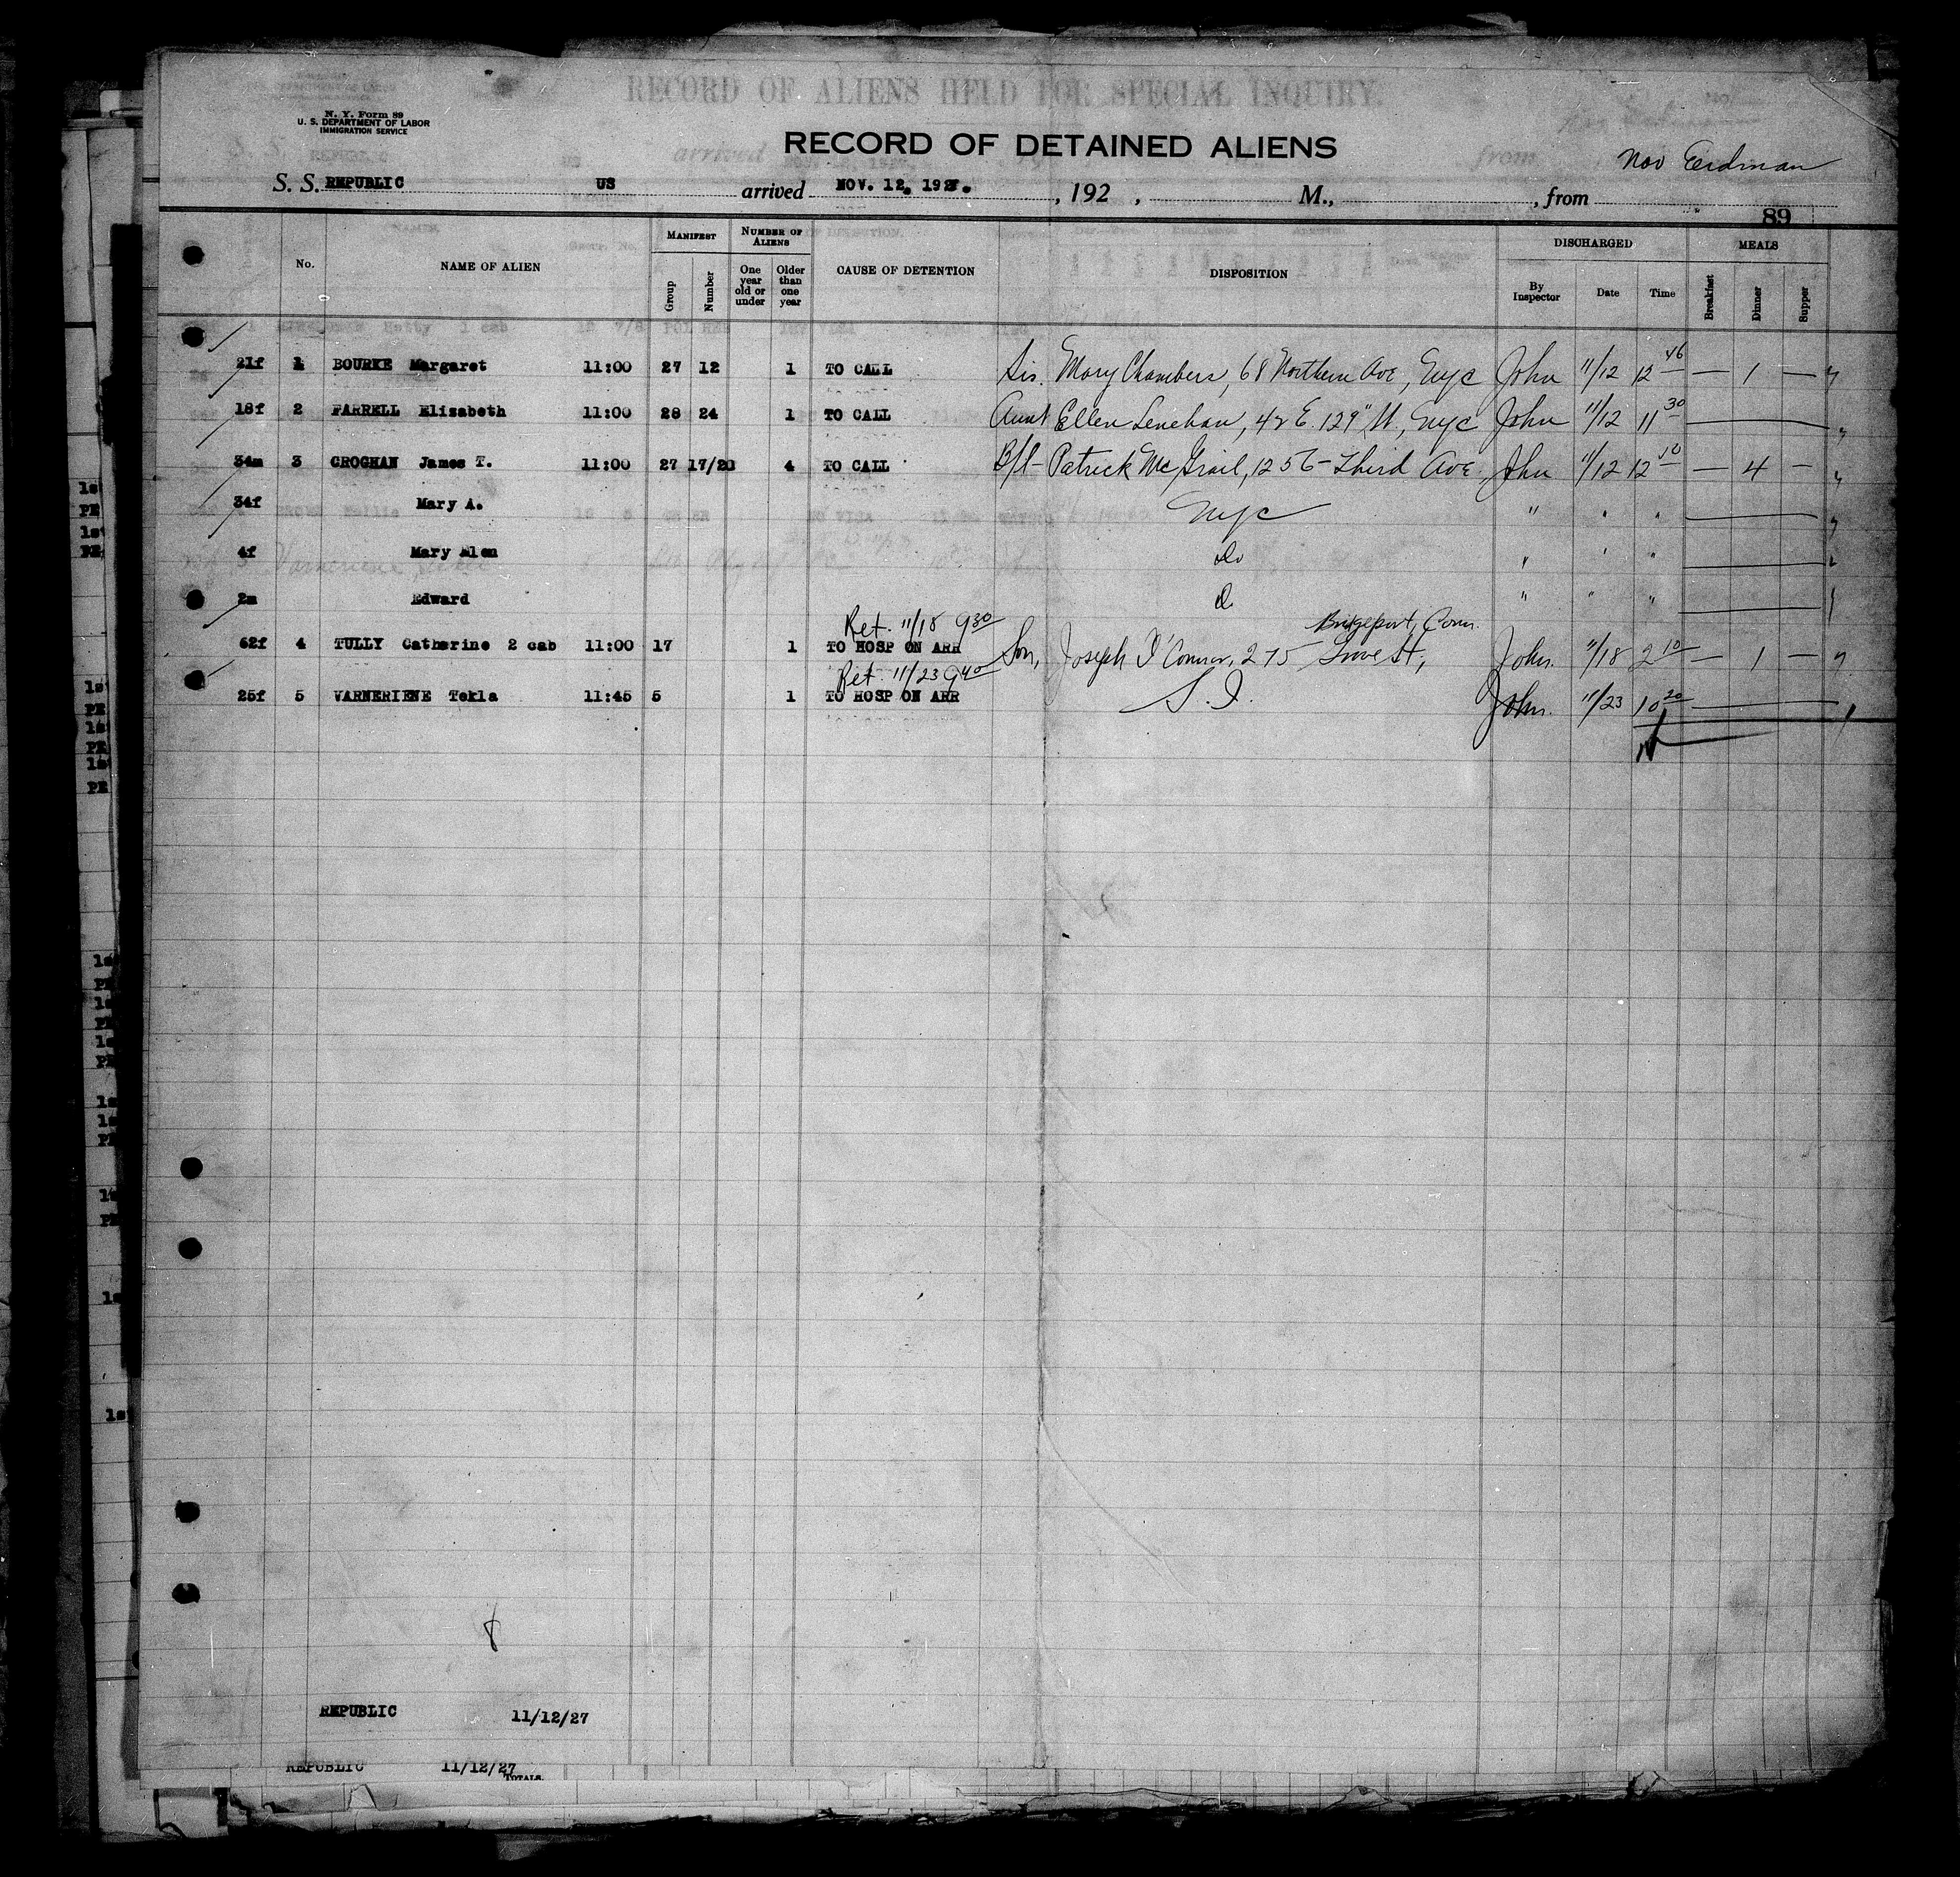 RECORD OF ALIENS HELD FOR SPECIAL INQUIRY.
N. Y. Form 89
U. S. DEPARTMENT OF LABOR
IMMIGRATION SERVICE
RECORD OF DETAINED ALIENS
S. S. REPUBLIC US arrived NOV. 12. 1927. , 192 , M., , from
89
No. NAME OF ALIEN MANIFEST Group Number NUMBER OF ALIENS One year old or under Older than one year CAUSE OF DETENTION DISPOSITION DISCHARGED By Inspector Date Time MEALS Breakfast Dinner Supper
21f 1 BOURKE Margaret 11:00 27 12 1 TO CALL Sis. Mary Chambers, 68 Northern Ave, NYC John 11/12 12 46 — 1 —
18f 2 FARRELL Elizabeth 11:00 28 24 1 TO CALL Aunt Ellen Lenehan, 42 E. 129" St, NYC John 11/12 11 30
34m 3 CROGHAN James T. 11:00 27 17/20 4 TO CALL B/l- Patrick McGrail, 1256 - Third Ave. John 11/12 12 10 — 4 —
34f Mary A. NYC " " "
4f Mary Elen Do " " "
2m Edward D. " " "
Ret. 11/18 9 30 Bridgeport, Conn.
62f 4 TULLY Catherine 2 cab 11:00 17 1 TO HOSP ON ARR Son, Joseph O'Connor, 275 Grove St, John. 11/18 2 10 — 1 —
Ret. 11/23 9 40
25f 5 VARNERIENE Tekla 11:45 5 1 TO HOSP ON ARR S. I. John. 11/23 10 20
8
REPUBLIC 11/12/27
REPUBLIC 11/12/27
TOTALS.